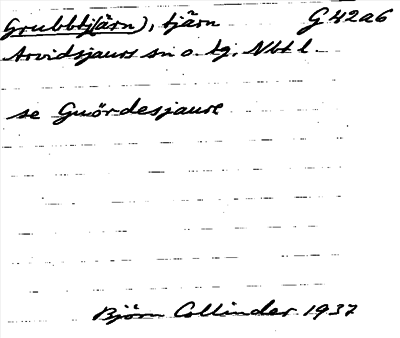 Grubbtj(ärn), tjärn G 42 a 6
Arvidsjaurs sn o. tg. Nbt l.
se Guordesjaure
Björn Collinder 1937